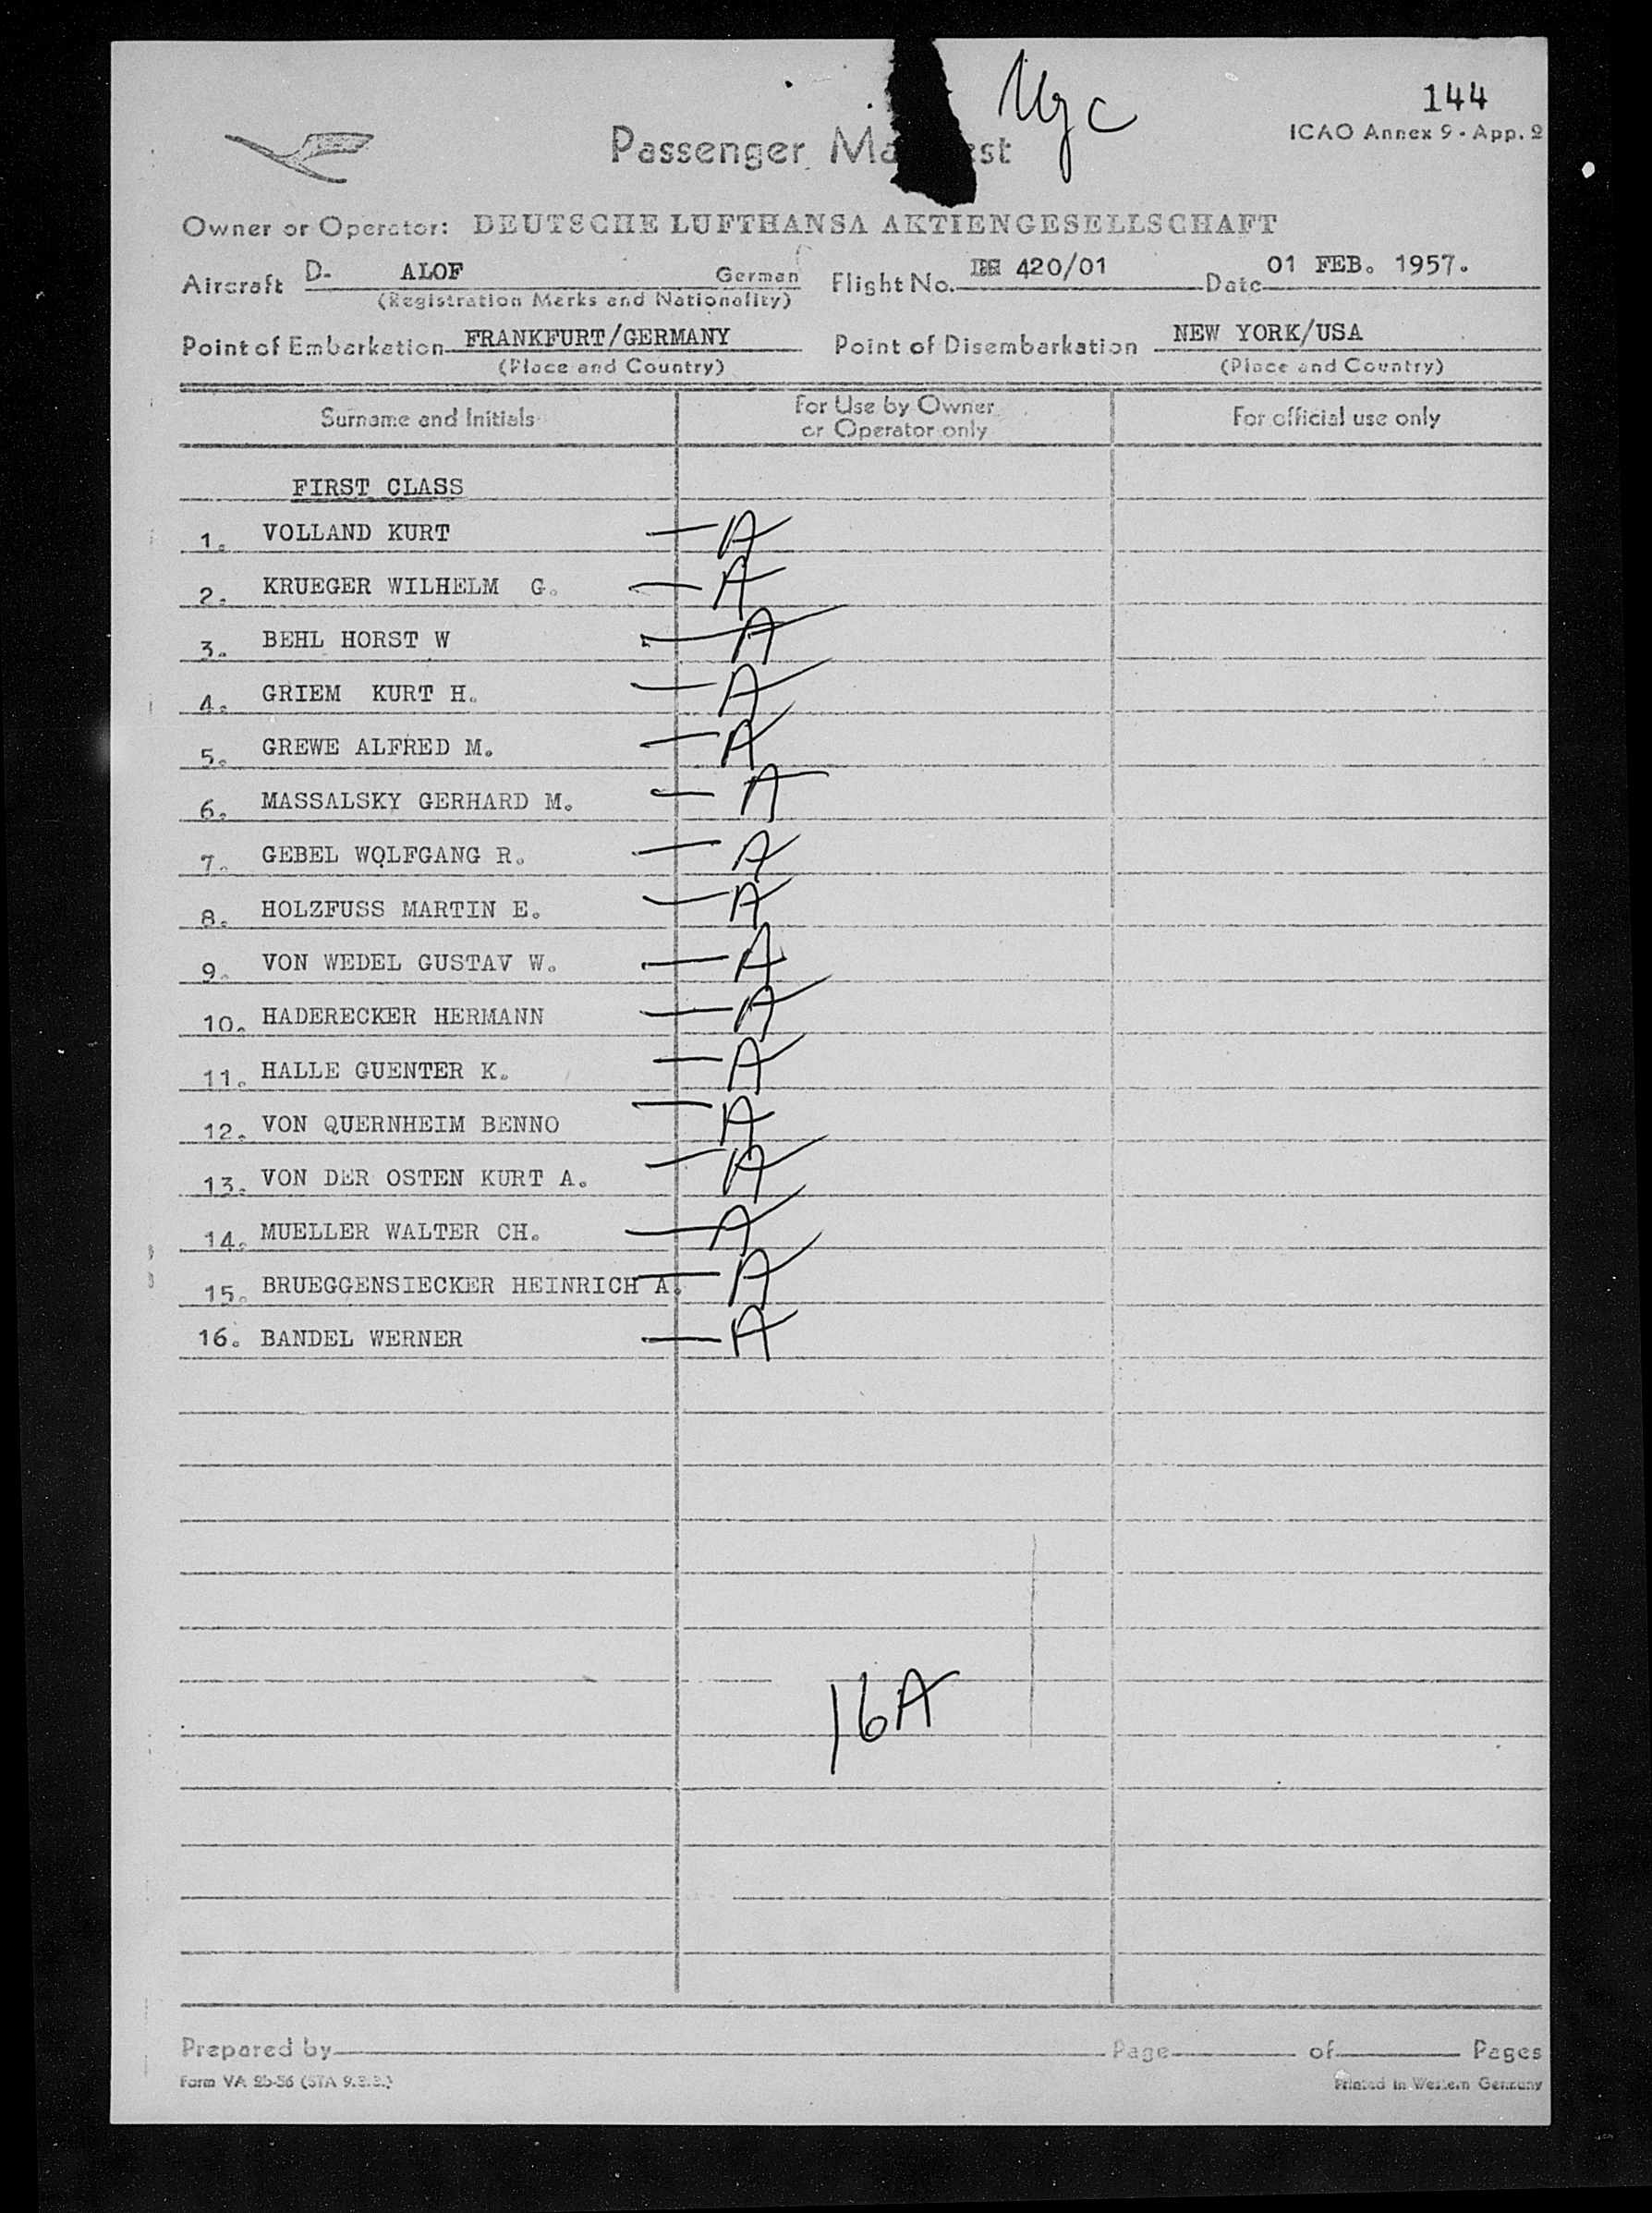 Nyc
144
ICAO Annex 9 - App. 2
Passenger Ma st
Owner or Operator: DEUTSCHE LUFTHANSA AKTIENGESELLSCHAFT
Aircraft D- ALOF German Flight No. 420/01 Date 01 FEB. 1957.
(Registration Marks and Nationality)
Point of Embarkation FRANKFURT/GERMANY Point of Disembarkation NEW YORK/USA
(Place and Country) (Place and Country)
Surname and Initials For Use by Owner or Operator only For official use only
FIRST CLASS
1. VOLLAND KURT — A
2. KRUEGER WILHELM G. — A
3. BEHL HORST W — A
4. GRIEM KURT H. — A
5. GREWE ALFRED M. — A
6. MASSALSKY GERHARD M. — A
7. GEBEL WOLFGANG R. — A
8. HOLZFUSS MARTIN E. — A
9. VON WEDEL GUSTAV W. — A
10. HADERECKER HERMANN — A
11. HALLE GUENTER K. — A
12. VON QUERNHEIM BENNO — A
13. VON DER OSTEN KURT A. — A
14. MUELLER WALTER CH. — A
15. BRUEGGENSIECKER HEINRICH A. — A
16. BANDEL WERNER — A
16A
Prepared by Page of Pages
Form VA 2b-56 Printed in Western Germany